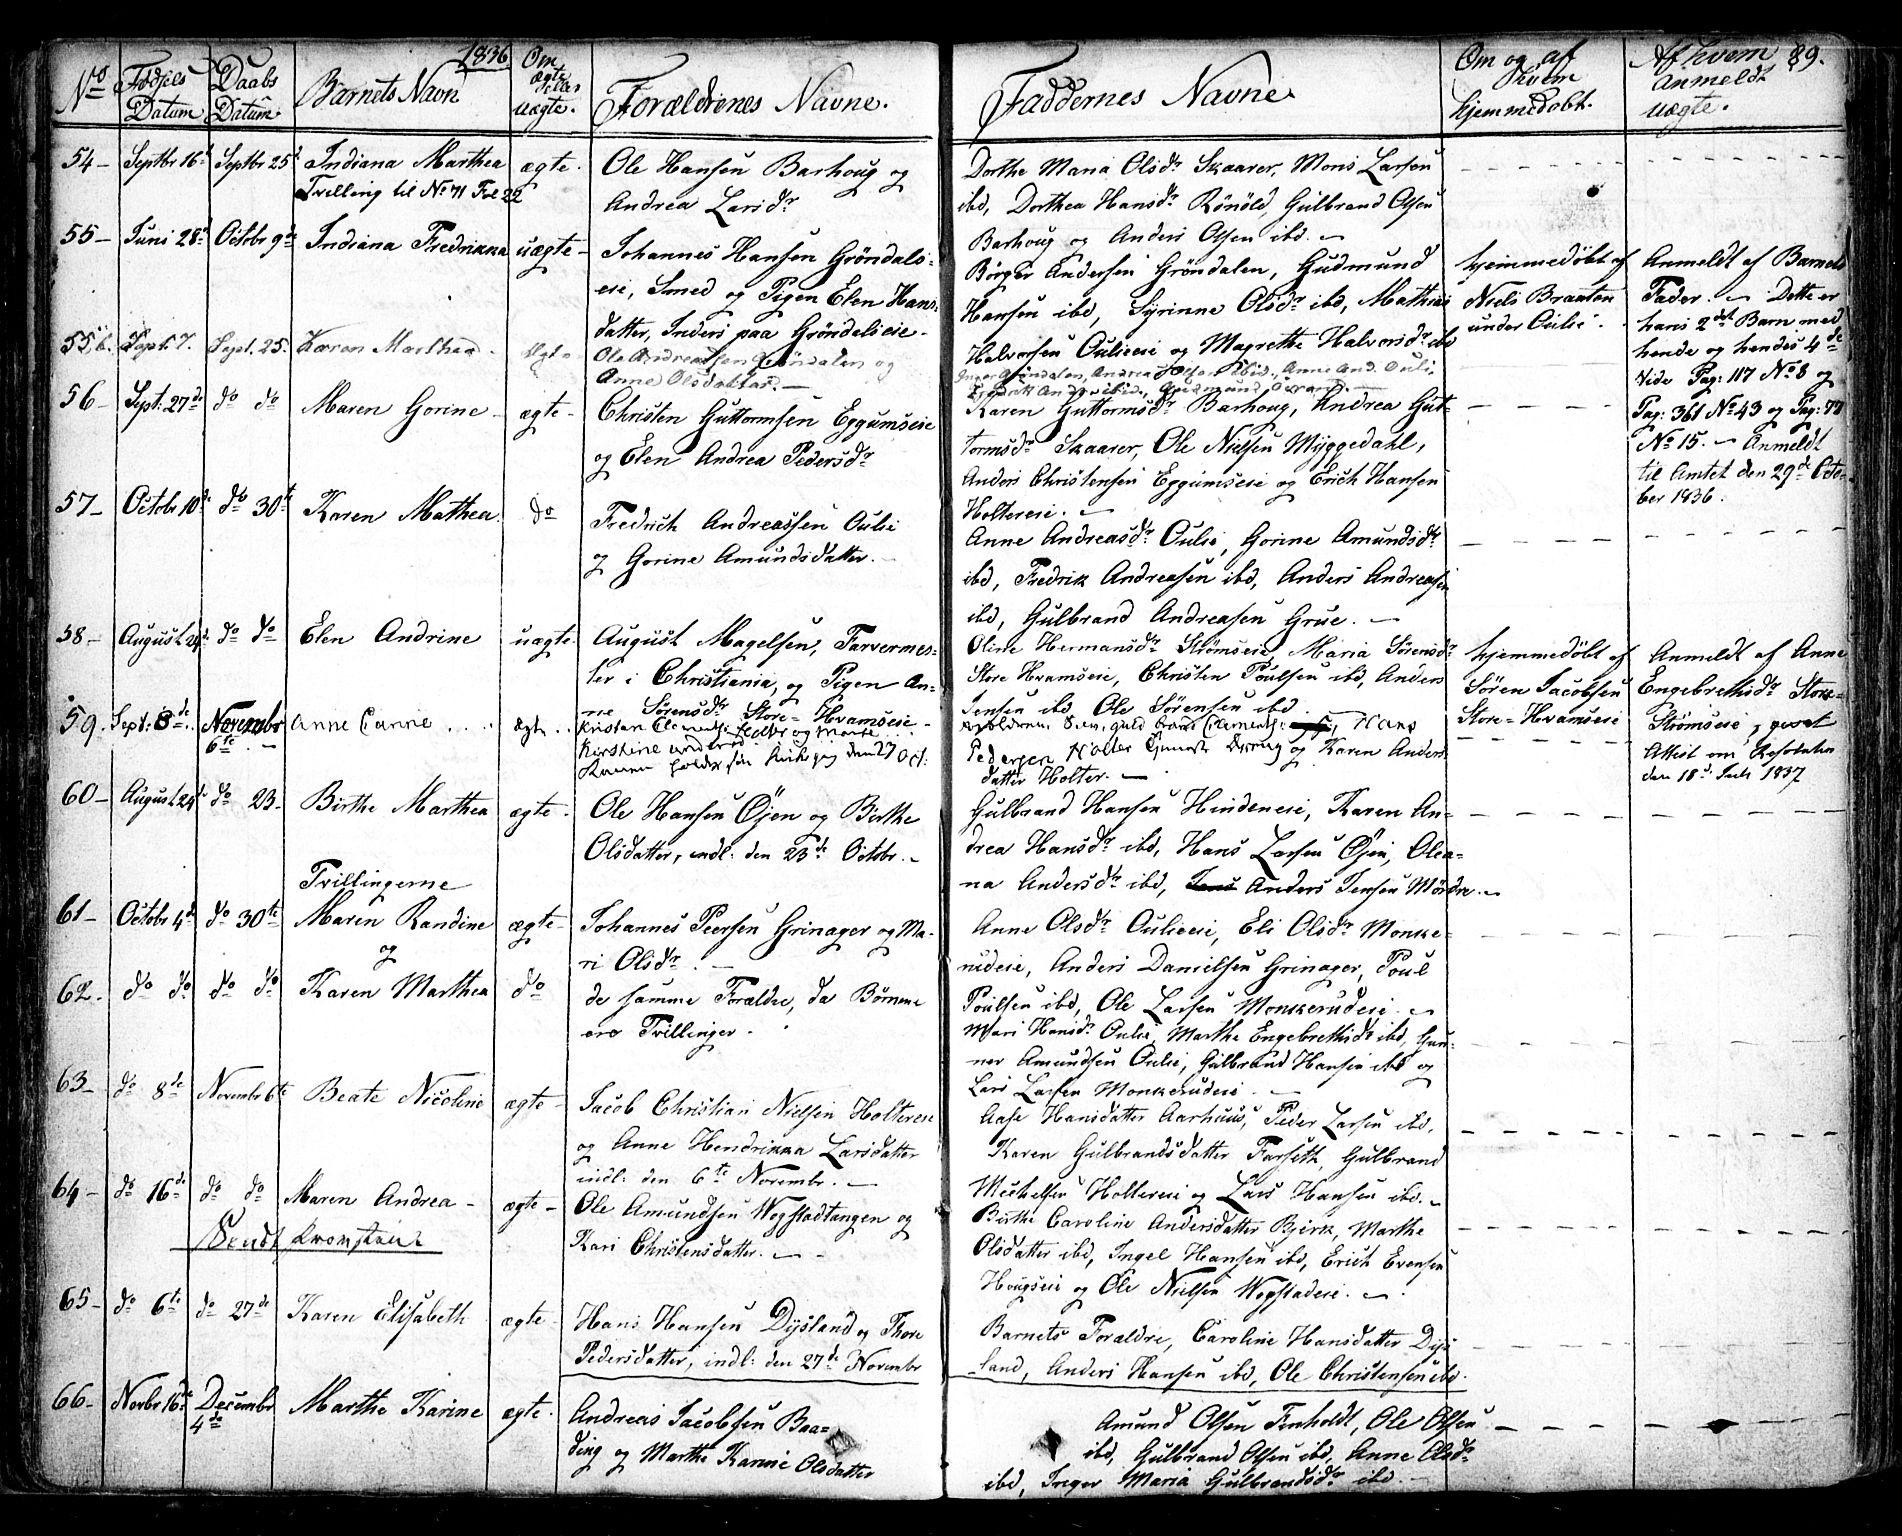 1836
89.
No
Fødsels Datum
Daabs Datum
Barnets Navn
Om ægte eller uægte.
Forældrenes Navne.
Faddernes Navne.
Om og af hvem hjemmedøbt.
Af hvem Anmeldt uægte.
54 - Septbr 16d Septbr 25d Indiana Marthea ægte.
Tvilling til No 71 Fol 22
Ole Hansen Barhoug og
Andrea Larsdr
Dorthe Maria Olsdr Skaarer, Mons Larsen
ibd, Dorthea Hansdr Rönöld, Gulbrand Olsen
Barhoug og Anders Olsen ibd.
55 - Juni 28d Octobr 9de Indiana Fredrikka uægte -
Johannes Hansen Gröndals-
eie, Smed og Pigen Elen Hans-
datter, Inders paa Gröndalseie -
Börger Andersen Gröndalen, Gudmund
Hansen ibd, Syrinne Olsdr ibd, Mathias
Halvorsen Oulieeie og Magrethe Halvorsdr ibd
hjemmedöbt af
Niels Braaten
under Oulie.
Anmeldt af Barnets
Fader. - Dette er
hans 2det Barn med
hende og hendes 4de
Vide Pag: 117 No 8 og
Pag: 361 No 43 og Pag: 77
No 15. - Anmeldt
til Amtet den 29de Octo-
ber 1836.
55 b. Sept. 7. Sept. 25. Karen Marthea. Ægte
Ole Andreassen Gröndalen og
Anne Olsdatter. -
56 - Sept: 27de do do Maren Gorine - ægte -
Christen Guttormsen Eggumseie
og Elen Andrea Pedersdr
Karen Guttormsdr Barhoug, Andrea Gut-
tormsdr Skaarer, Ole Nielsen Myggedahl,
Anders Christensen Eggumseie og Erich Hansen
Holtereie. -
57 - Octobr 10de do 30te Karen Mathea. do
Fredrich Andreassen Oulie
og Gorine Amundsdatter. -
Anne Andreasdr Oulie, Gorine Amundsdr
ibd, Fredrik Andreasen ibd, Anders Andreasen
ibd, Gulbrand Andreasen Grue. -
58 - August 24d do do Elen Andrine uægte
August Magelsen, Farvermes-
ter i Christiania, og Pigen An-
ne Sörensdr Store-Hvamseie -
Oline Hermansdr Strömseie, Maria Sörensdr
Store Hvamseie, Christen Poulsen ibd, Anders
Jensen ibd, Ole Sörensen ibd
hjemmedöbt af
Sören Jacobsen
Store-Hvamseie
Anmeldt af Anne
Engebrethsdr Store-
Strömseie, givet
Attest om Resolution
den 18d Juli 1837
59. Sept: 8de Novembr 6te - Anne Canne . . . . ægte . .
Kristen Clements: Holter og Marte
Pedersen Holter Gunder Drong og Karen Anders
datter Holter. -
60 - August 24d do 23 - Birthe Marthea ægte.
Ole Hansen Öjen og Birthe
Olsdatter, indl: den 23de Octobr. -
Gulbrand Hansen Hindeneie, Karen An-
drea Hansdr ibd, Hans Larsen Öjen, Olea-
na Andersdr ibd, Jens Anders Jensen Mördre. -
Tvillingerne
61 - Octobr 4de do 30te Maren Randine ægte -
og
Johannes Peersen Grinager og Ma-
ri Olsdr. -
Anne Olsdr Oulieeie, Eli Olsdr Monske-
rudeie, Anders Danielsen Grinager, Poul
Poulsen ibd, Ole Larsen Monskerudeie. -
62. do do do do Karen Marthea do
de samme Forældre, da Börnene
ere Tvillinger.
Mari Hansdr Oulie, Marthe Engebrethsdr ibd, Gun-
ner Amundsen Oulie, Gulbrand Hansen ibd og
Lars Larsen Monskerudeie. -
63 - do 8de Novembr 6te Beate Nicoline ægte -
Jacob Christian Nielsen Holtereie
og Anne Hendrikka Larsdatter
indl: den 6te Novembr. -
Aase Hansdatter Aarhuus, Peder Larsen ibd.
Karen Gulbrandsdatter Farseth, Gulbrand
Michelsen Holtereie og Lars Hansen ibd. -
64 - do 16de do do Maren Andrea - ægte -
Ole Amundsen Wegstadtangen og
Kari Christensdatter. -
Birthe Caroline Andersdatter Bjerk, Marthe
Olsdatter ibd, Ingel Hansen ibd, Erich Evensen
Hougseie og Ole Nielsen Wegstadeie. -
65 - do 6te do 27de Karen Elisabeth ægte -
Hans Hansen Dysland og Thore
Pedersdatter, indl: den 27de Novembr
Barnets Forældre, Caroline Hansdatter Dys-
land, Anders Hansen ibd, Ole Christensen ibd.
66 - Novbr 16de Decembr 4de Marthe Karine ægte.
Andreas Jacobsen Baa-
ding og Marthe Karine Olsdatter
Amund Olsen Finholdt, Ole Olsen
ibd, Gulbrand Olsen ibd, Anne Olsdr
ibd, Inger Maria Gulbrandsdr ibd. -